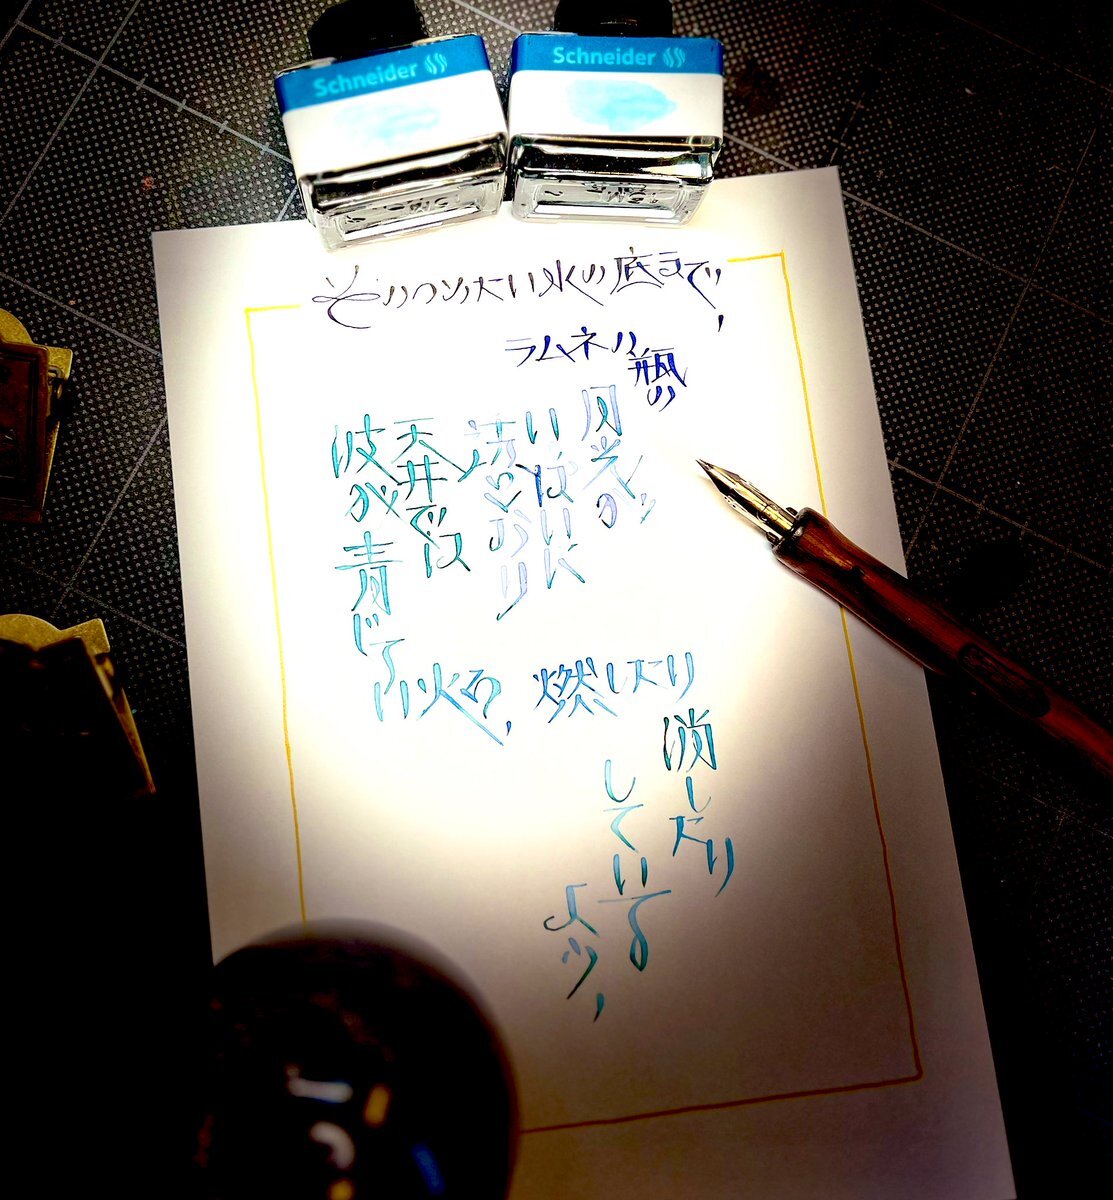 Schneider
Schneider
そのつめたい水の底まで、
ラムネの
瓶の
月光が
いっぱいに
透とおり
天井では
波が青じろ
い火を、燃したり
消したり
している
よう、